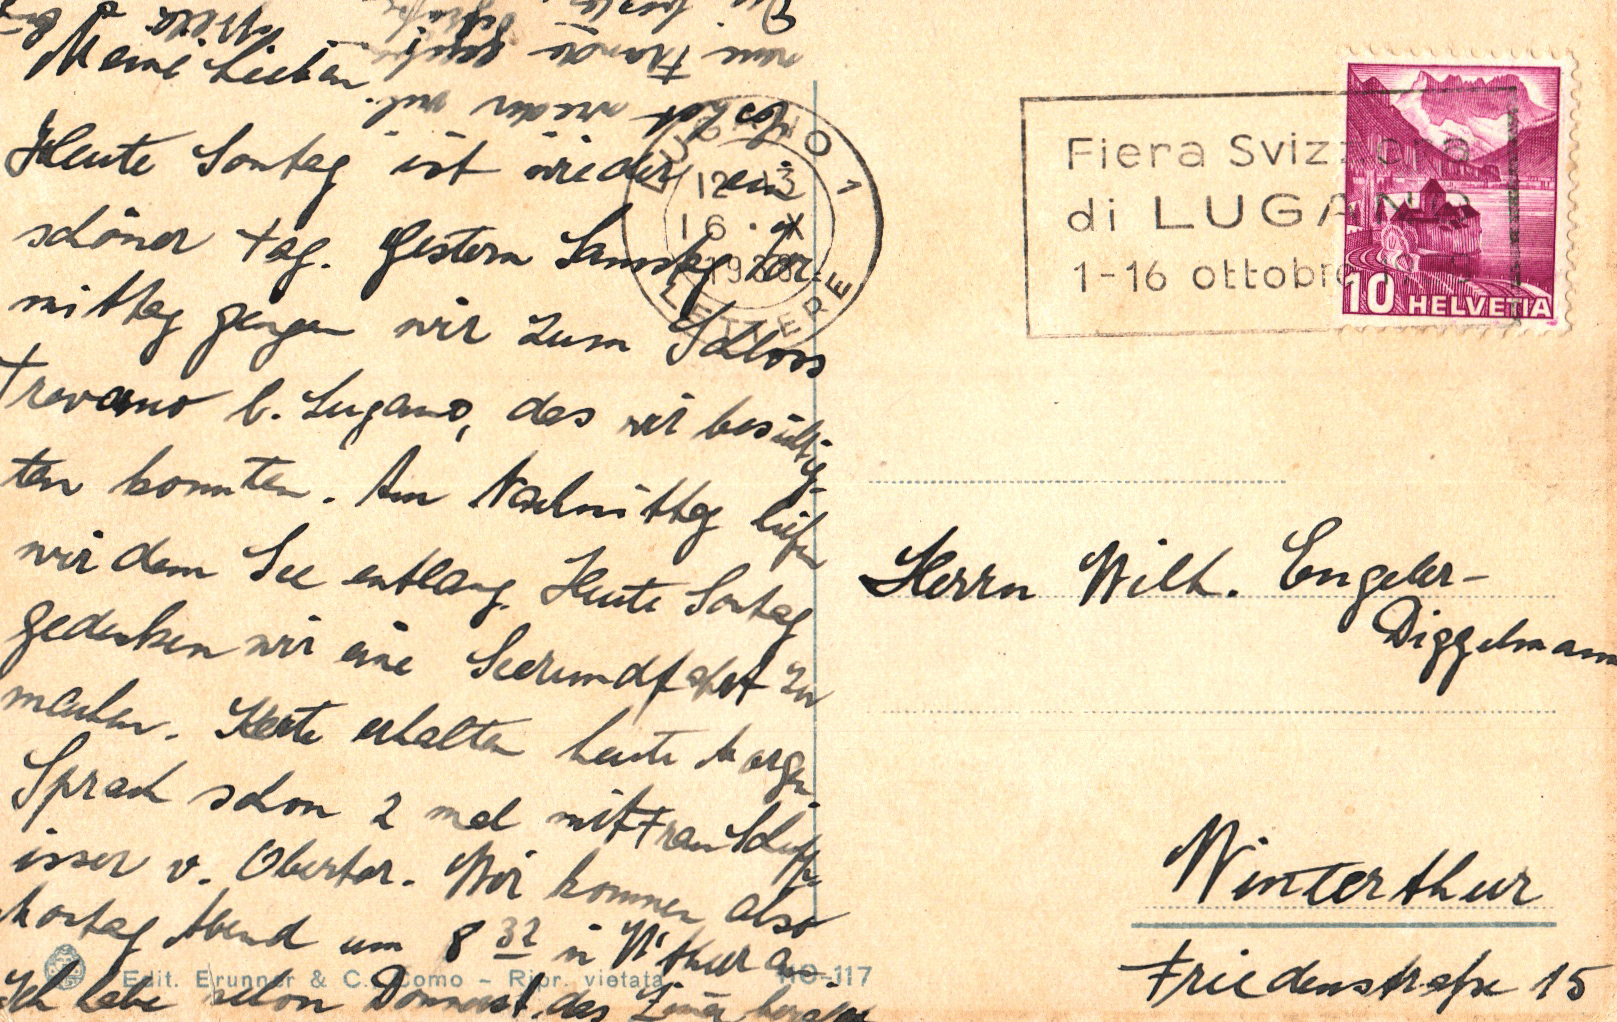 Meine Lieben
Heute Sontag ist wieder ein
schöner Tag. Gestern Samstag Vor-
mittag gingen wir zum Schloss
Trevano b. Lugano, das wir besichtig-
ten konnten. Am Nachmittag liefen
wir dem See entlang. Heute Sontag
gedenken wir eine Seerundfahrt zu
machen. Karte erhalten heute Morgen
Sprach schon 2 mal mit Frau
v. Obertor. Wir kommen also
Montag Abend um 8 32 in W'thur an
Ich habe schon Donnerst. das
Es hat wieder
neue
Fiera Svizzera
di LUGANO
1-16 ottobre
LUGANO 1
12 - 13
16 · X
LETTERE
10 HELVETIA
Herrn Wilh. Engeler-
Diggelmann
Winterthur
Friedenstraße 15
Edit. Brunner & C. Como - Ripr. vietata
117